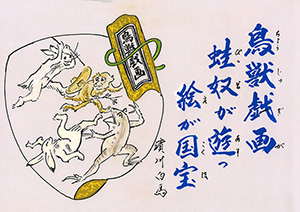 鳥獣戯画
蛙奴が遊っ
絵が国宝
鳥獣戯画